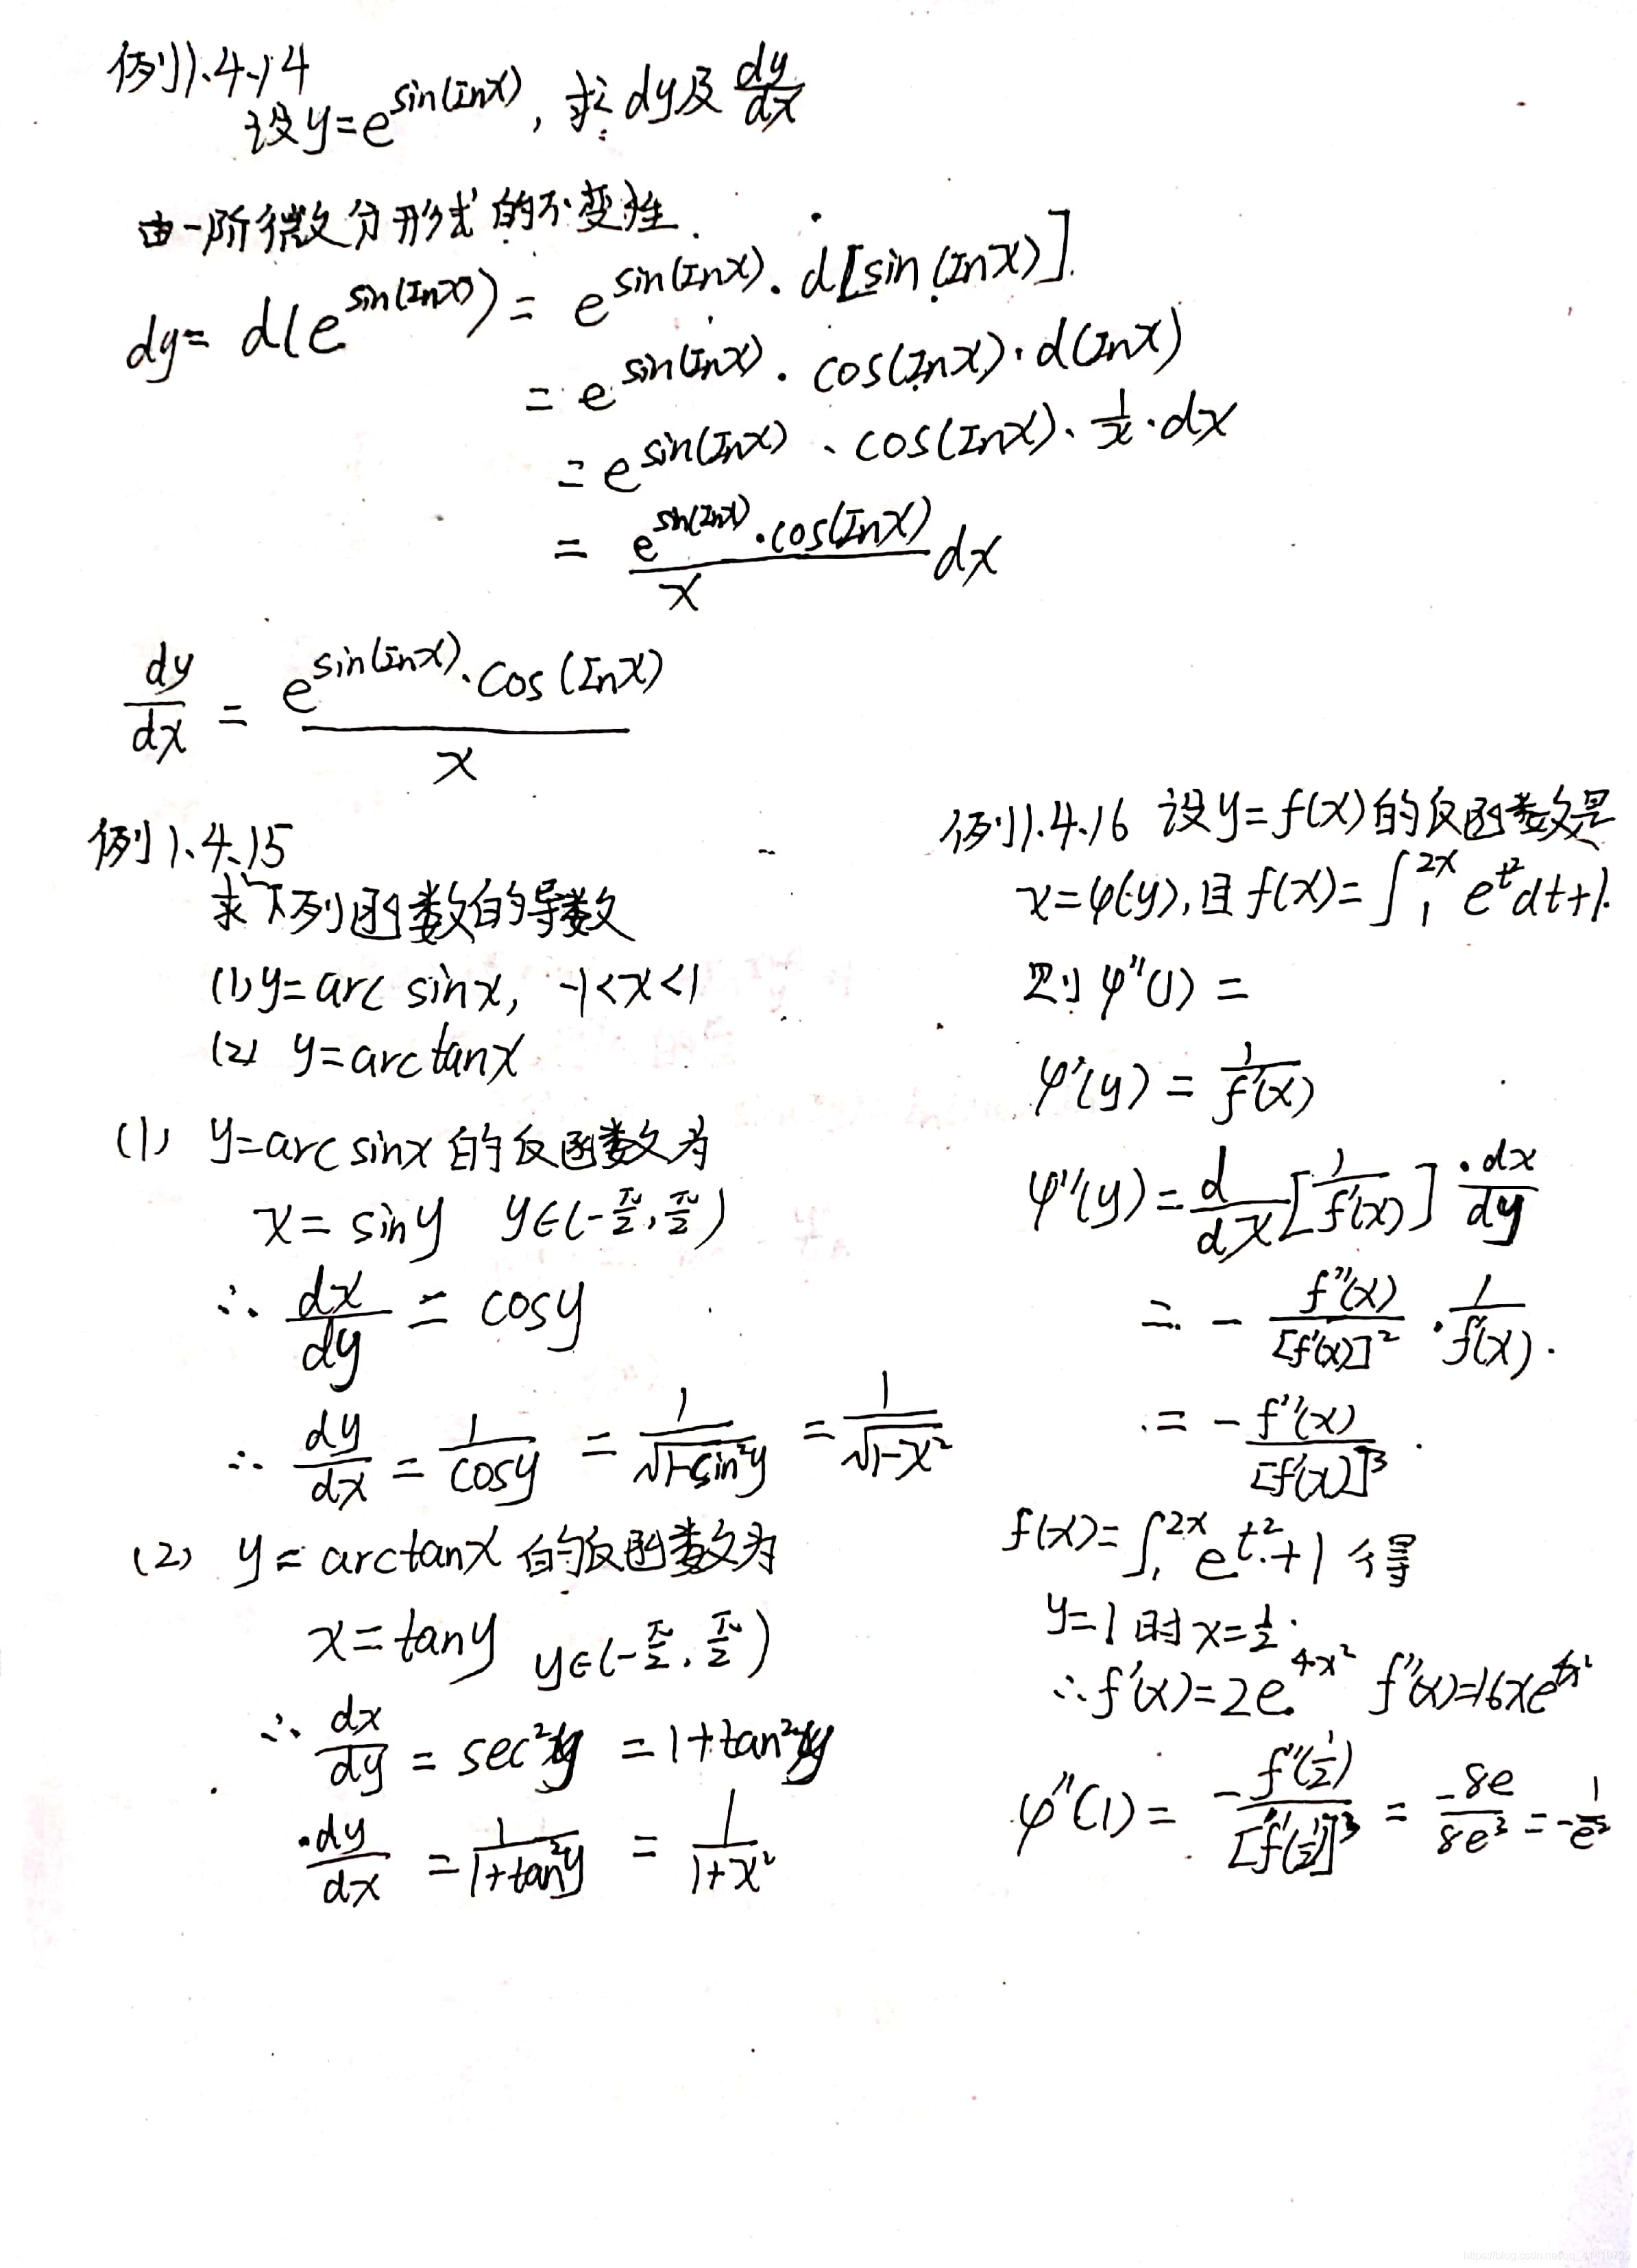 例1.4.14
设y=e^{sin(lnx)}, 求 dy及 \frac{dy}{dx}
由一阶微分形式的不变性.
dy= d(e^{sin(lnx)}) = e^{sin(lnx)}·d[sin(lnx)].
= e^{sin(lnx)}·cos(lnx)·d(lnx)
= e^{sin(lnx)}·cos(lnx)·\frac{1}{x}·dx
= \frac{e^{sin(lnx)}·cos(lnx)}{x}dx
\frac{dy}{dx} = \frac{e^{sin(lnx)}·cos(lnx)}{x}
例1.4.15
求下列函数的导数
(1) y=arc sinx, -1<x<1
(2) y=arctanx
(1) y=arc sinx 的反函数为
x= siny y∈(-\frac{π}{2},\frac{π}{2})
∴ \frac{dx}{dy} = cosy
∴ \frac{dy}{dx} = \frac{1}{cosy} = \frac{1}{\sqrt{1-sin^2y}} = \frac{1}{\sqrt{1-x^2}}
(2) y= arctanx 的反函数为
x=tany y∈(-\frac{π}{2},\frac{π}{2})
∴ \frac{dx}{dy} = sec^2y = 1+tan^2y
\frac{dy}{dx} = \frac{1}{1+tan^2y} = \frac{1}{1+x^2}
例1.4.16 设y=f(x)的反函数是
x=φ(y),且 f(x)=∫_1^{2x} e^{t^2}dt+1.
则 φ''(1) =
φ'(y) = \frac{1}{f'(x)}
φ''(y) = \frac{d}{dx}[\frac{1}{f'(x)}]·\frac{dx}{dy}
= -\frac{f''(x)}{[f'(x)]^2}·\frac{1}{f'(x)}.
= -\frac{f''(x)}{[f'(x)]^3}.
f(x)=∫_1^{2x}e^{t^2}+1 得
y=1时 x=\frac{1}{2}.
∴f'(x)=2e^{4x^2} f''(x)=16xe^{4x^2}
φ''(1) = \frac{-f''(\frac{1}{2})}{[f'(\frac{1}{2})]^3} = \frac{-8e}{8e^3} = -\frac{1}{e^2}